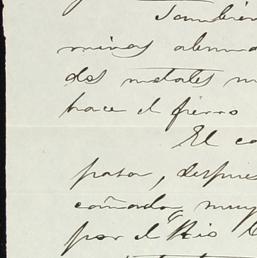 Tambien
minas abun
dos metales m
hace el fierro
El ca
pasa, despue
cañada, muy
por el Rio